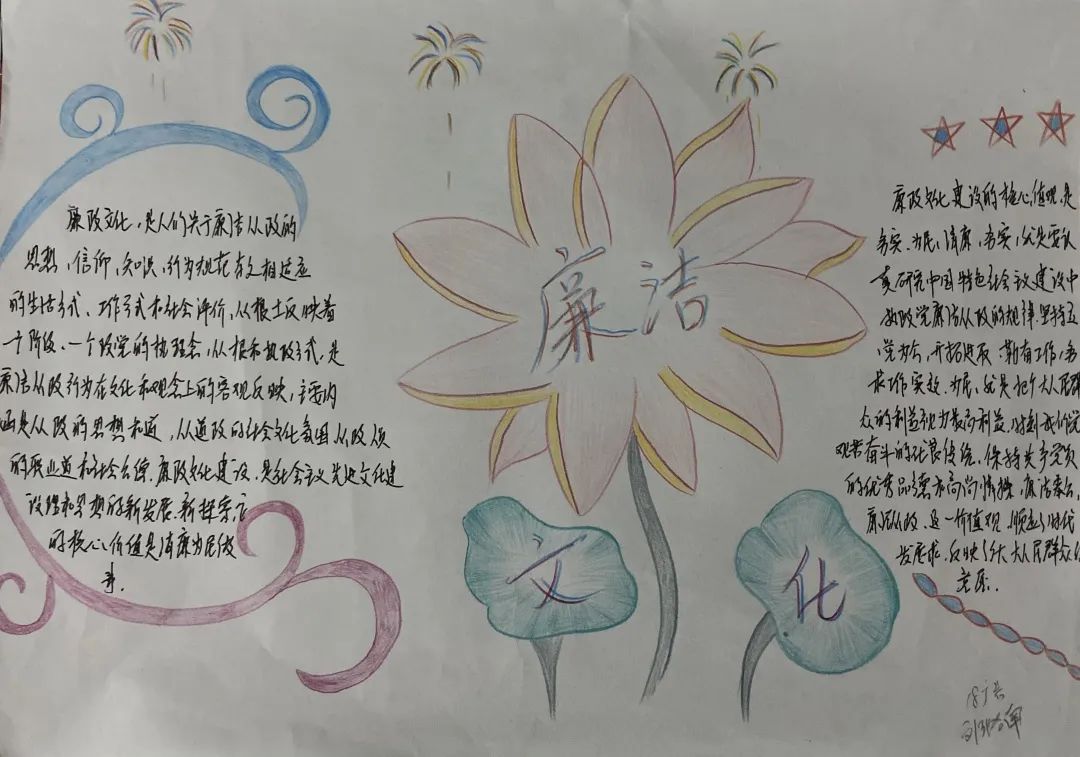 廉洁
文
化
廉政文化,是人们关于廉洁从政的
思想、信仰、知识、行为规范有之相适应
的生活方式、工作方式和社会评价,从根上反映着
一个阶级、一个政党的执理念,从根和执政方式,是
廉洁从政行为在文化和观念上的客观反映,主要内
涵是从政的思想和道,从道政的社会文化氛围从政须
的职业道和社会公德.廉政文化建设,是社会主义先进文化建
设理和思想的新发展.新探索,它
的核心价值是清廉为民做
事.
廉政文化建设的核心值观,是
务实、为民、清廉,务实,就是要认
真研究中国特色社会主义建设中
执政党廉洁从政的规律.坚持立
党为公,开拓进取.勤有工作,务
求工作实效.为民,就是把广大人民群
众的利益视为最高利益,
艰苦奋斗的优良传统.保持共产党员
的优秀品德和高尚情操,廉洁奉公,
廉洁从政.这一价值观,顺应了时代
发展求.反映了广大人民群众的
意愿.